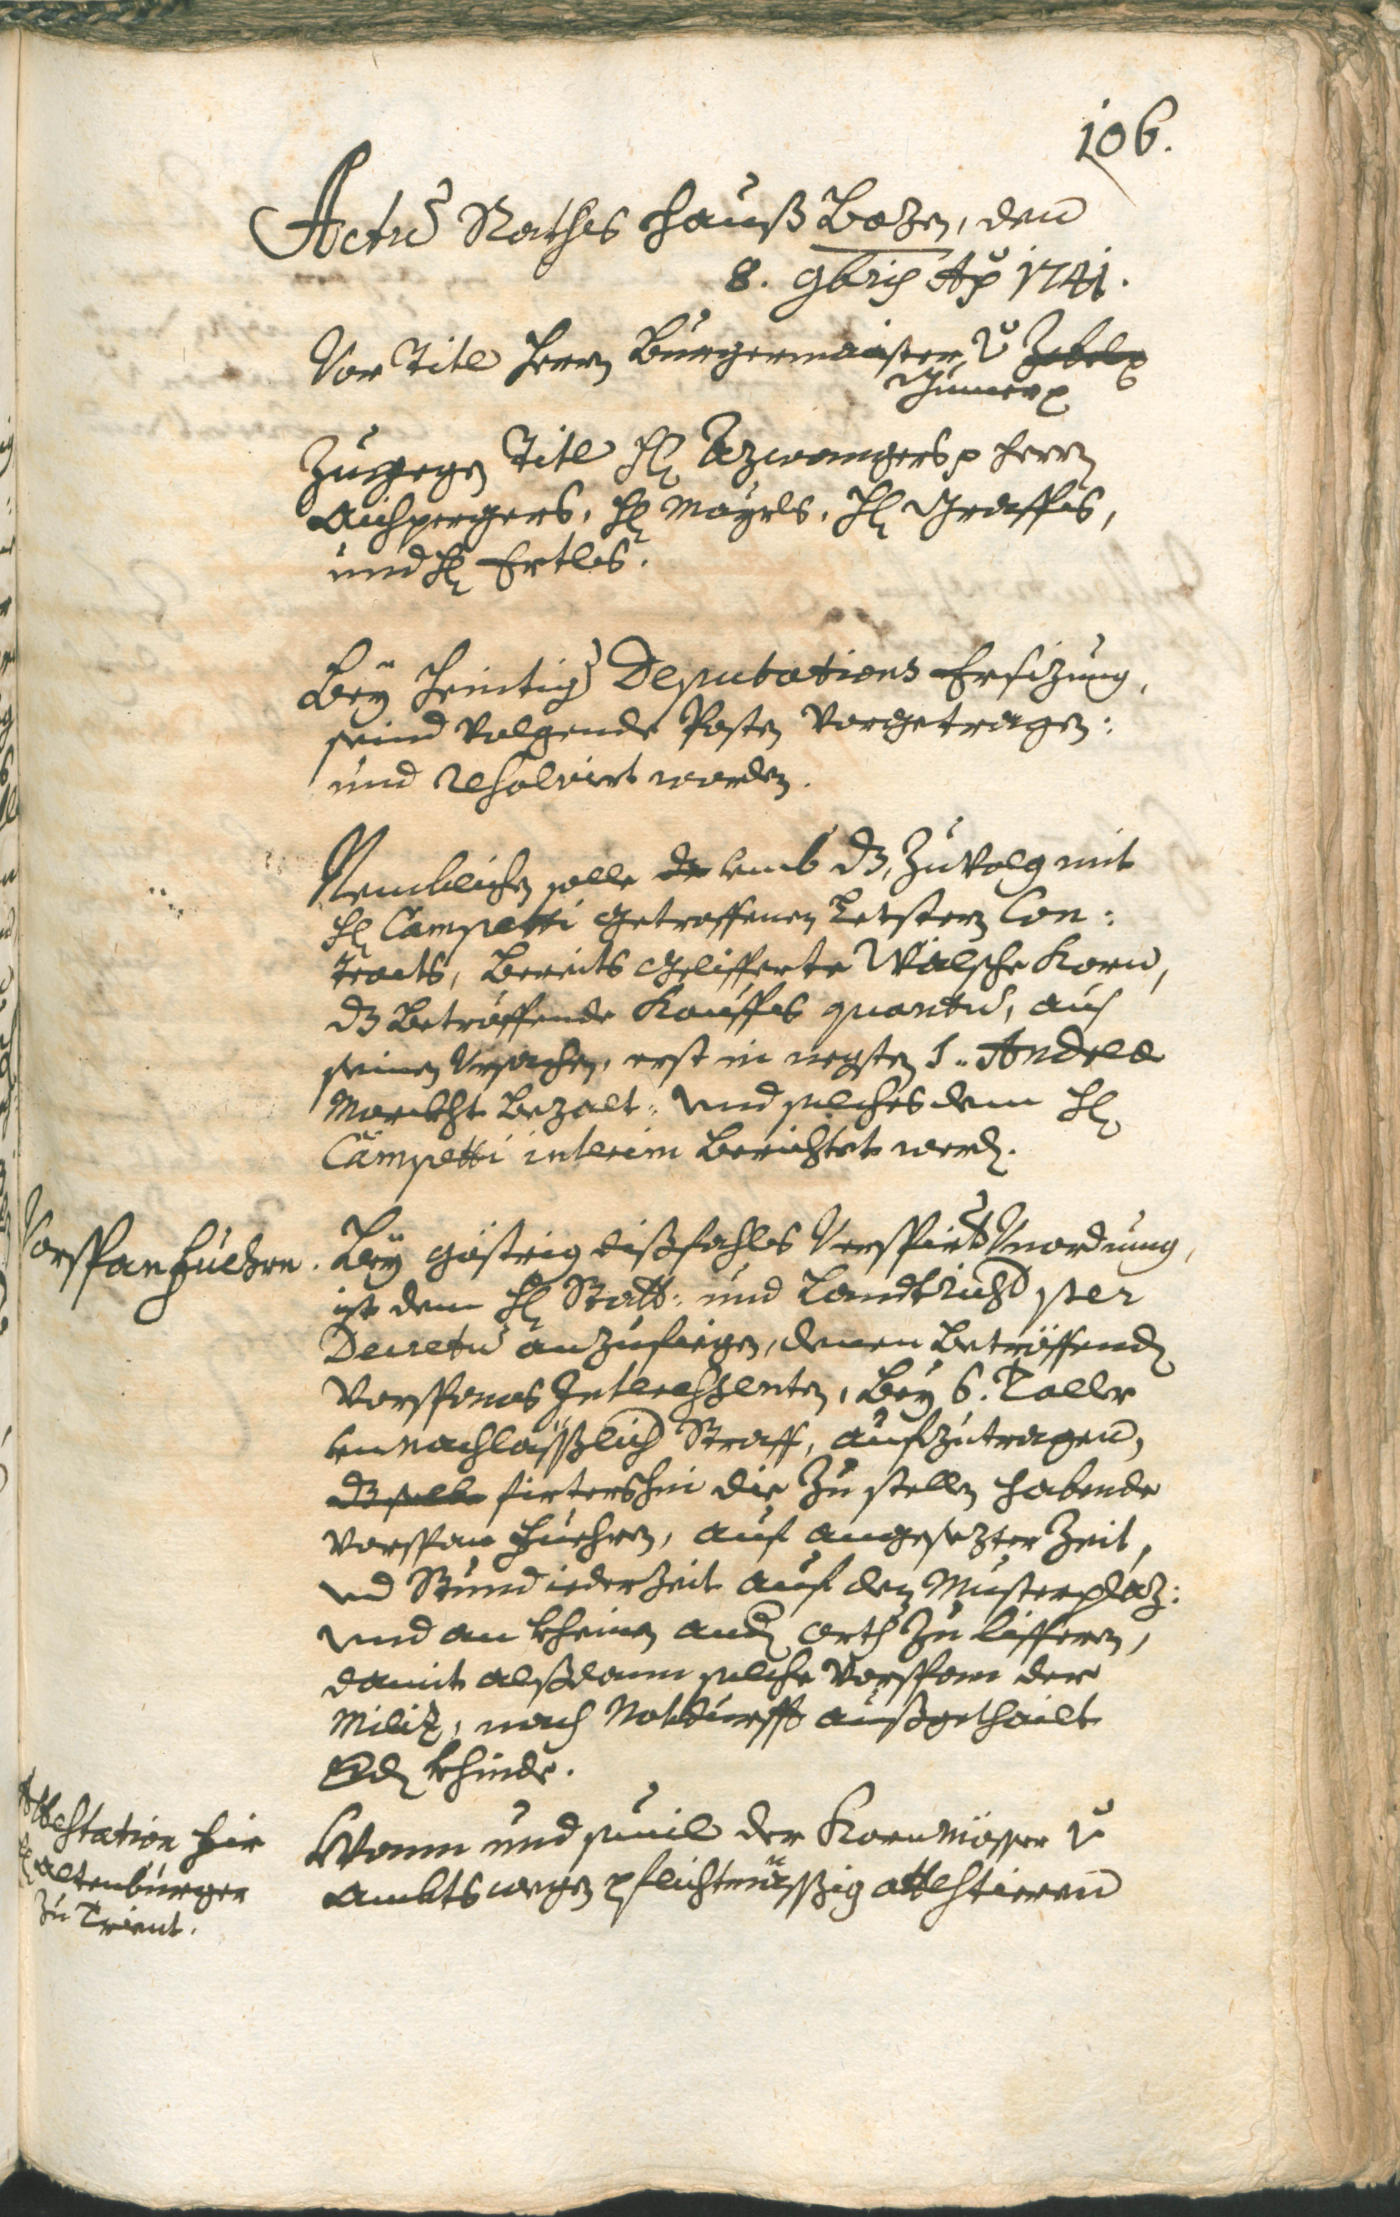 106.
Actu̅ Raths hauß Bozen, den
8. 9bris Ao 1741.
Vor Titl Herrn Burgermaister v.
Zuegegen Titl H. Azwangers p Herrn
Aichpergers, H. Mayrls, H. Graffs,
und H. Ertls.
Bey heintig Deputations Ersizung,
seind volgende Posten vorgetragen:
und resolvirt worden.
Nemblichen solle umb dz, zuvolg mit
H. Campetti getroffenen letsten Con:
tracts, bereits gelifferte Wälsche Korn,
dz betröffende Kauffs quantu̅, aus
seinen Ursachen, erst in negsten S. Andreæ
Marckht bezalt: und solches dem H.
Campetti interim berichtet werd.
Vorspan Fuehren.
Bey göstrig dißfahls Verspirt Unordnung,
ist dem H. Statt: und Landtricht per
Decretu̅ anzufiegen, denen betröffend
Vorspanns Interessenten, bey 6. Taller
unnachläßlich Straff, aufzutragen,
dz selbe firtershin die zu stellen habende
Vorspan Fuehren, auf angesezter Zeit,
und Stund iederzeit auf den Musterplaz:
und an kheinen and orth zu liffern,
damit alßdann solche Vorspan der
Miliz, nach Notdurfft außgethailt
werd khinde.
Attestation fir
H. Altenburger
zu Trient.
Wann und sovil der Kornmösser v
Ambts wegen pflichtmässig attestieren